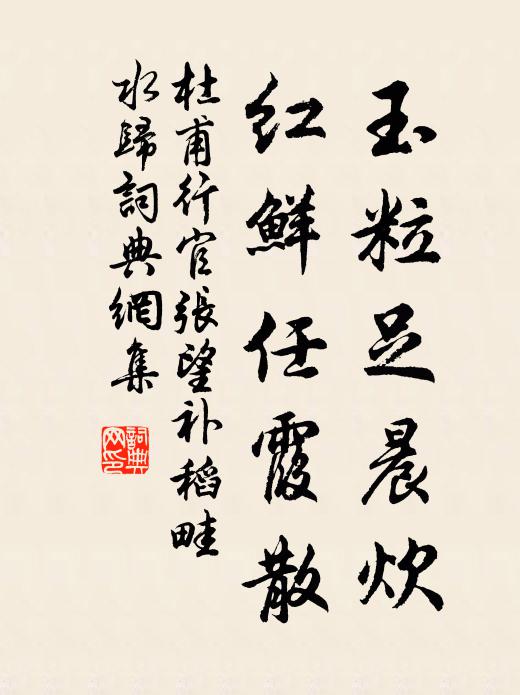 玉粒足晨炊
红鲜任霞散
杜甫行官张望补稻畦
水歸詞典網集
詞典网印